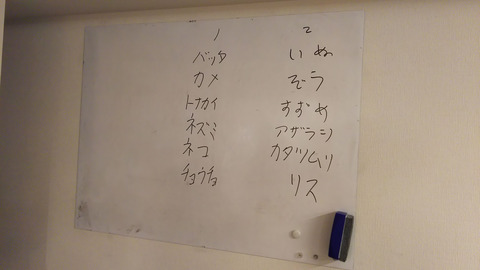 1
バッタ
カメ
トナカイ
ネズミ
ネコ
チョウチョ
2
いぬ
ぞう
すずめ
アザラシ
カタツムリ
リス